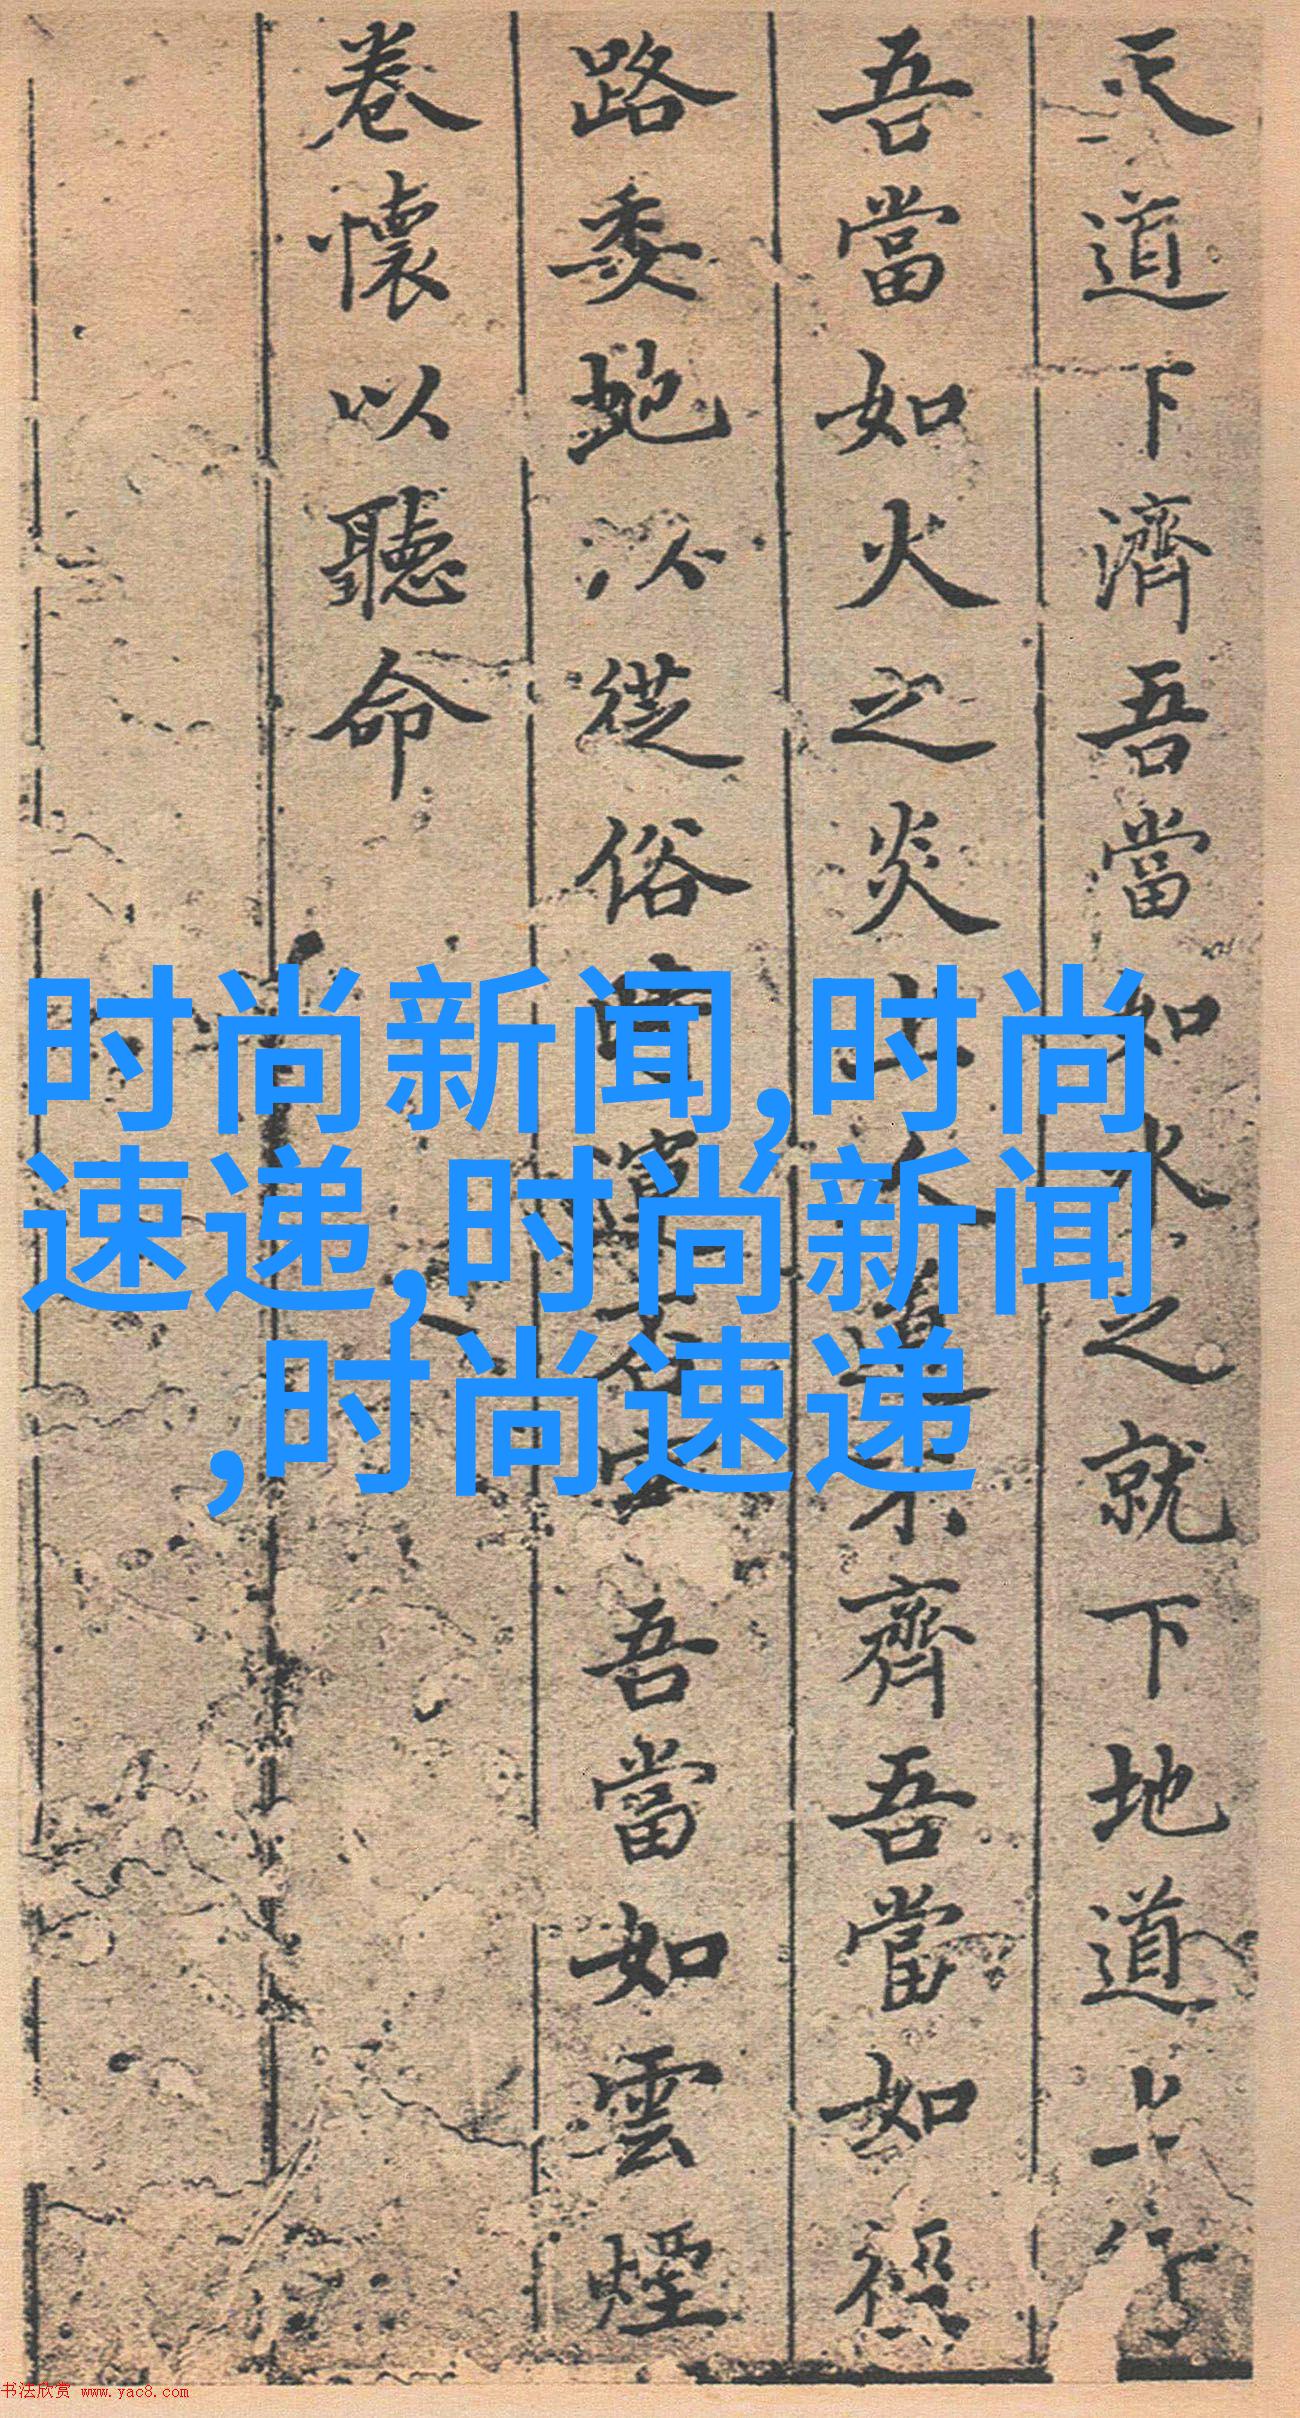 天道下濟吾當如水之就下地道上行
吾當如火之炎上人道不齊吾當如徑
路委虵以從俗時運吾當如雲煙
卷懷以聽命
时尚新闻,时尚
速递,时尚新闻
,时尚速递
书法欣赏 www.yac8.com